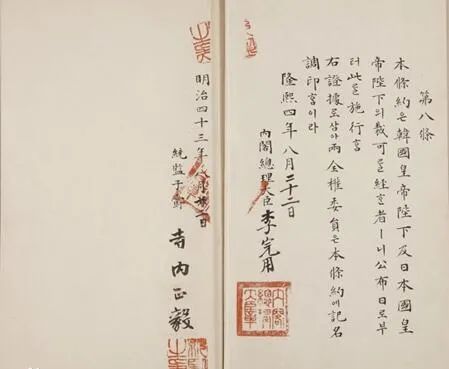 第八條
本條約은韓國皇帝陛下及日本國皇
帝陛下의裁可를經ᄒᆞᆫ者ㅣ니公布日로부
터此를施行ᄒᆞᆷ
右證據로삼아兩全權委員은本條約에記名
調印ᄒᆞᆷ이라
隆熙四年八月二十二日
內閣總理大臣 李完用
內閣總理大臣章
明治四十三年八月
統監子爵 寺內正毅